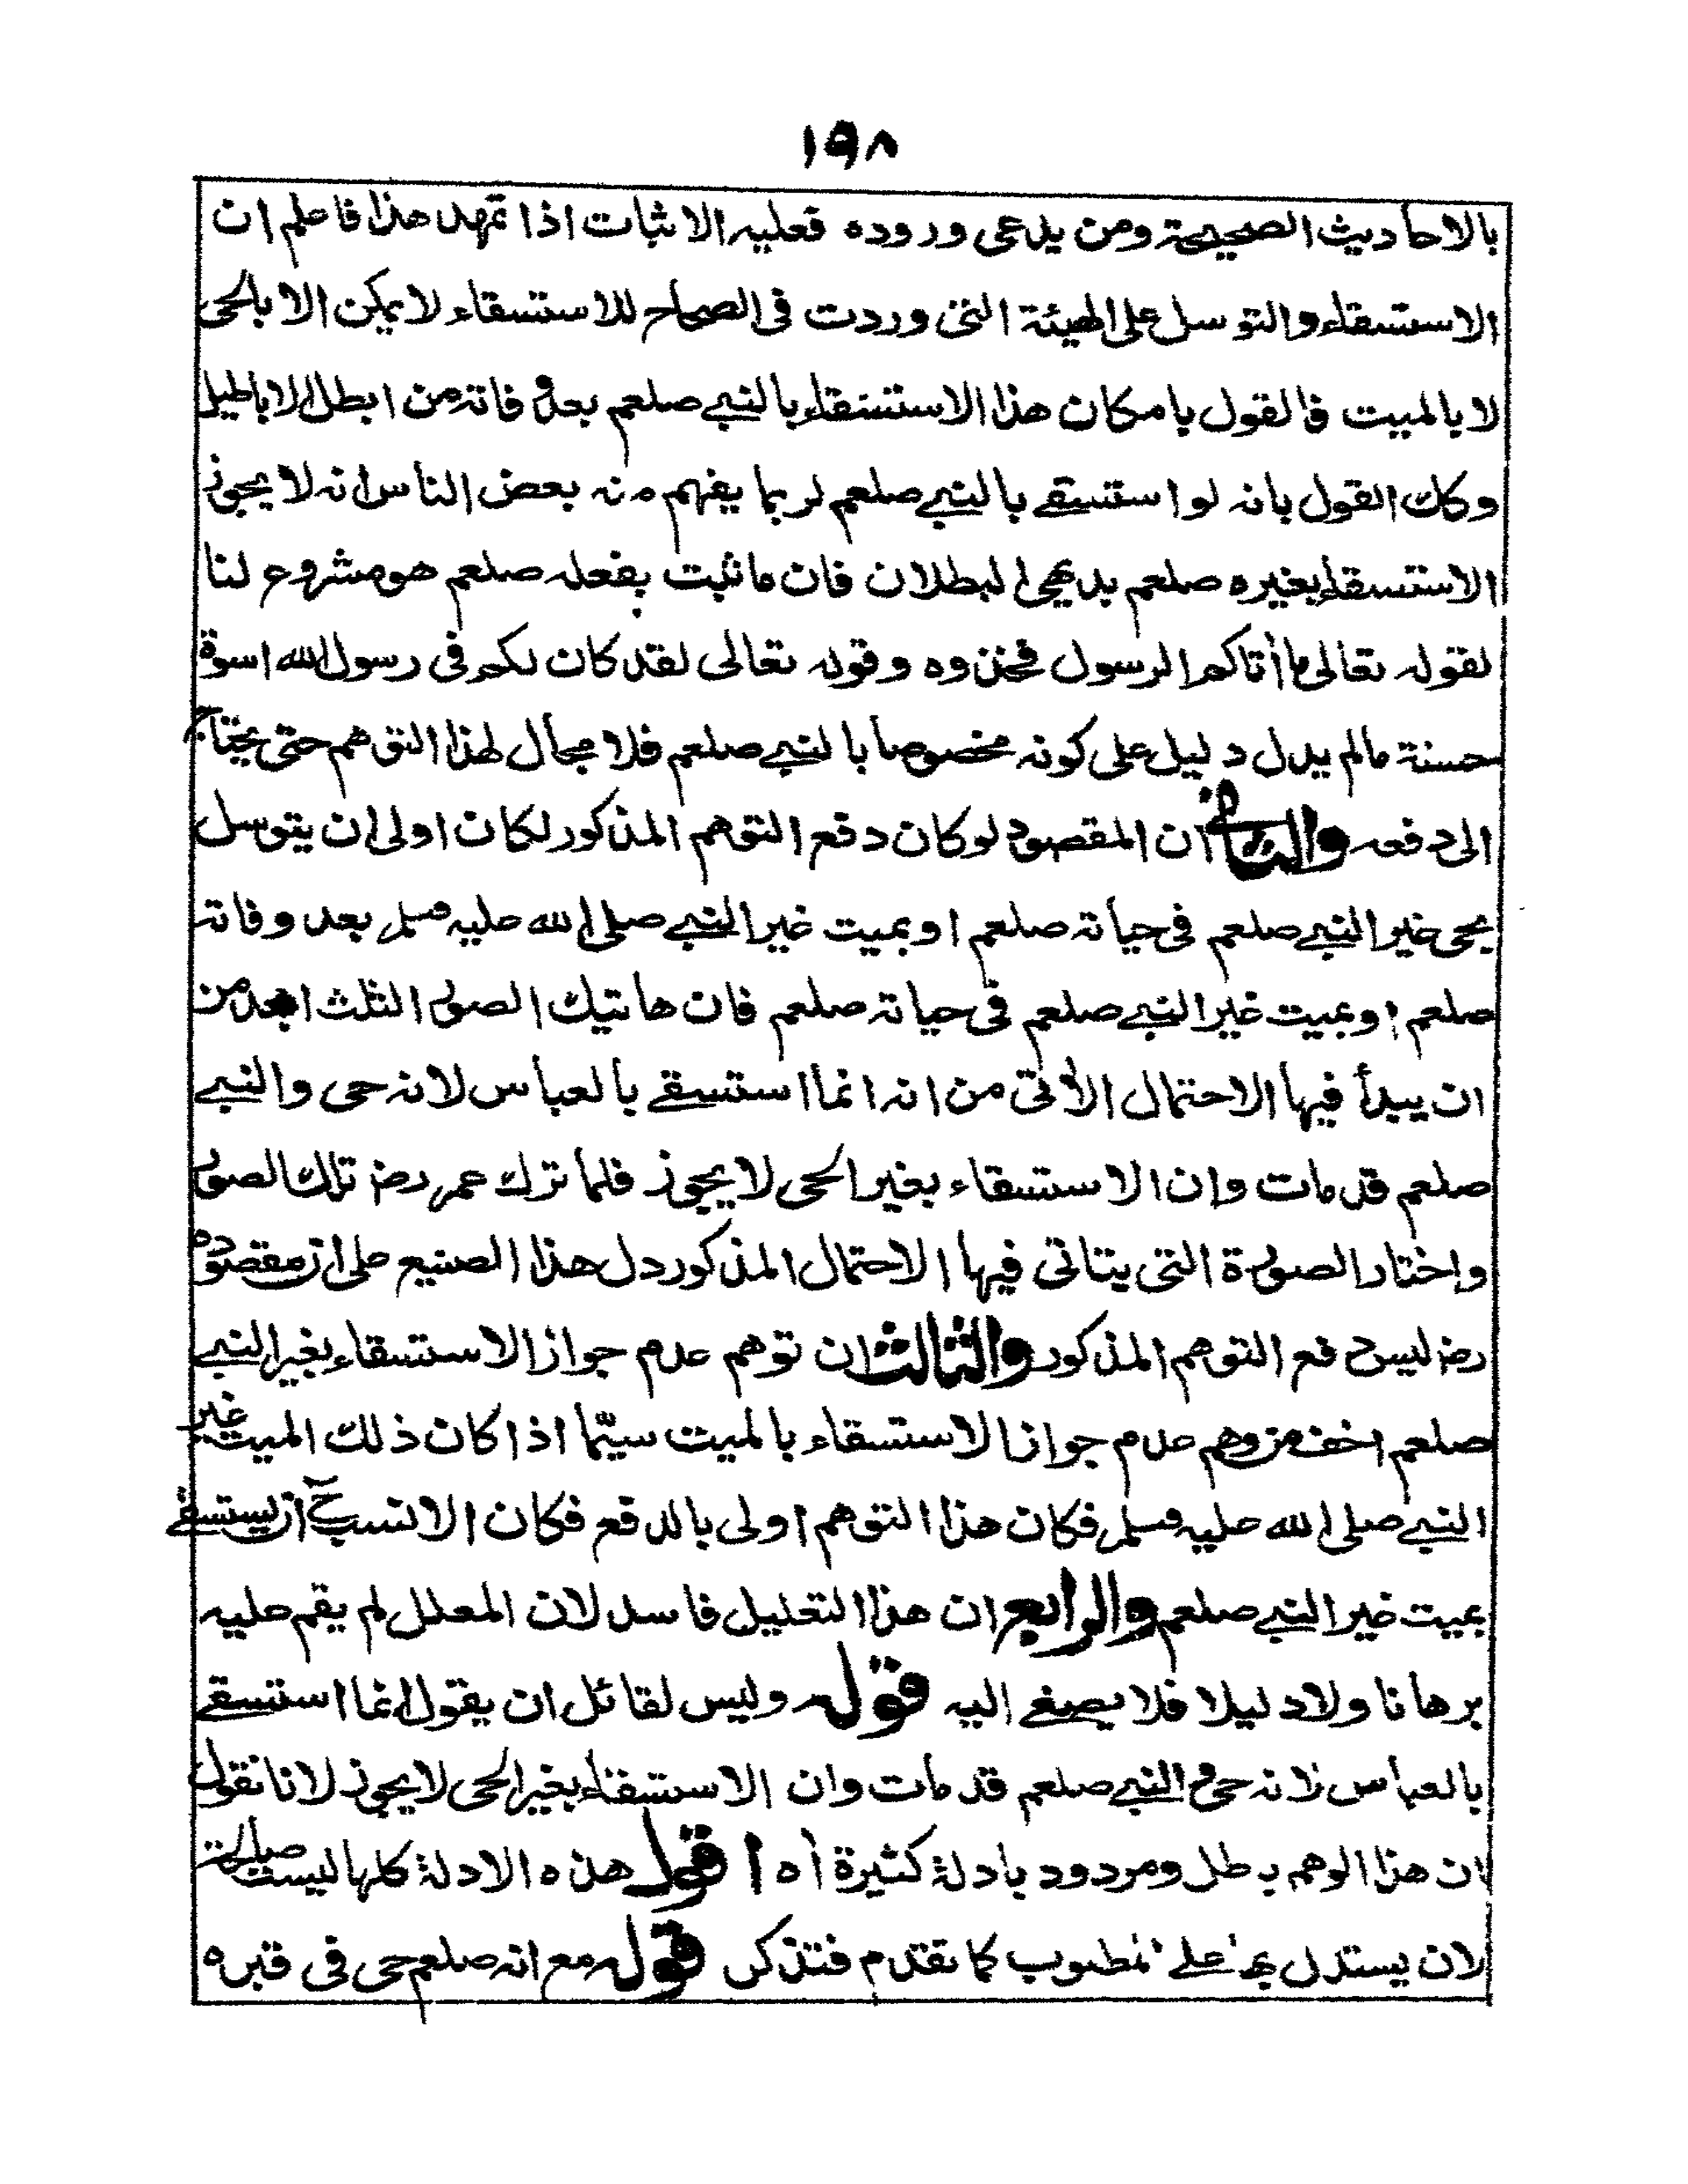 ١٩٨
بالاحاديث الصحيحة ومن يدعى وروده فعليه الاثبات اذا تمهد هذا فاعلم ان
الاستسقاء والتوسل على الهيئة التى وردت فى الصحاح للاستسقاء لا يمكن الا بالحى
لا بالميت فالقول بامكان هذا الاستسقاء بالنبى صلعم بعد وفاته من ابطل الاباطيل
وكك القول بانه لو استسقى بالنبى صلعم لربما يفهم منه بعض الناس انه لا يجوز
الاستسقاء بغيره صلعم بديهى البطلان فان ما ثبت بفعله صلعم هو مشروع لنا
لقوله تعالى ما أتاكم الرسول فخذوه وقوله تعالى لقد كان لكم فى رسول الله اسوة
حسنة مالم يدل دليل على كونه مخصوصا بالنبى صلعم فلا مجال لهذا التوهم حتى يحتاج
الى دفعه والثانى ان المقصود لو كان دفع التوهم المذكور لكان اولى ان يتوسل
بحى غير النبى صلعم فى حياته صلعم او بميت غير النبى صلى الله عليه وسلم بعد وفاته
صلعم او بميت غير النبى صلعم فى حياته صلعم فان هاتيك الصور الثلث ابعد من
ان يبدأ فيها الاحتمال الأتى من انه انما استسقى بالعباس لانه حى والنبى
صلعم قد مات وان الاستسقاء بغير الحى لا يجوز فلما ترك عمر رضـ تلك الصور
واختار الصورة التى يتاتى فيها الاحتمال المذكور دل هذا الصنيع على ان مقصوده
رضـ ليس دفع التوهم المذكور والثالث ان توهم عدم جواز الاستسقاء بغير النبى
صلعم اخف من وهم عدم جواز الاستسقاء بالميت سيّما اذا كان ذلك الميت غير
النبى صلى الله عليه وسلم فكان هذا التوهم اولى بالدفع فكان الانسب ح ان يستسقى
بميت غير النبى صلعم والرابع ان هذا التعليل فاسد لان المعلل لم يقم عليه
برهانا ولا دليلا فلا يصغى اليه قوله وليس لقائل ان يقول انما استسقى
بالعباس لانه حى والنبى صلعم قد مات وان الاستسقاء بغير الحى لا يجوز لانا نقول
ان هذا الوهم باطل ومردود بادلة كثيرة أه اقول هذه الادلة كلها ليست صالحة
لان يستدل بها على المطلوب كما تقدم فتذكر قوله مع انه صلعم حى فى قبره